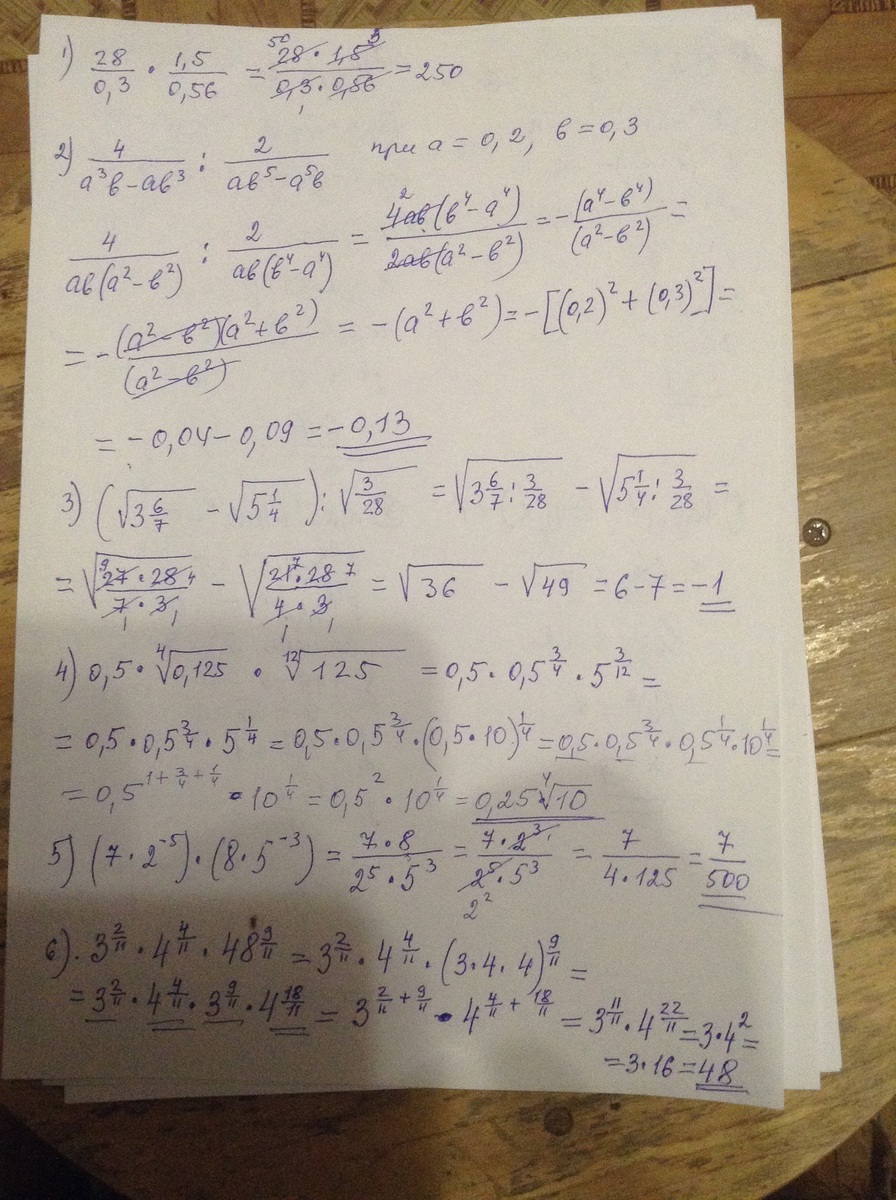 1) 28/0,3 · 1,5/0,56 = 28 · 1,5/0,3 · 0,56 = 250
2) 4/a³b − ab³ : 2/ab⁵ − a⁵b при a = 0,2, b = 0,3
4/ab(a² − b²) : 2/ab(b⁴ − a⁴) = 4ab(b⁴ − a⁴)/2ab(a² − b²) = −(a⁴ − b⁴)/(a² − b²) =
= −(a² − b²)(a² + b²)/(a² − b²) = −(a² + b²) = −[(0,2)² + (0,3)²] =
= −0,04 − 0,09 = −0,13
3) (√3 6/7 − √5 1/4) : √3/28 = √3 6/7 : 3/28 − √5 1/4 : 3/28 =
= √27 · 28/7 · 3 − √21 · 28/4 · 3 = √36 − √49 = 6 − 7 = −1
4) 0,5 · ⁴√0,125 · ¹²√125 = 0,5 · 0,5^3/4 · 5^3/12 =
= 0,5 · 0,5^3/4 · 5^1/4 = 0,5 · 0,5^3/4 · (0,5 · 10)^1/4 = 0,5 · 0,5^3/4 · 0,5^1/4 · 10^1/4 =
= 0,5^1 + 3/4 + 1/4 · 10^1/4 = 0,5² · 10^1/4 = 0,25 ⁴√10
5) (7 · 2⁻⁵) · (8 · 5⁻³) = 7 · 8/2⁵ · 5³ = 7 · 2³/2⁵ · 5³ = 7/4 · 125 = 7/500
6). 3^2/11 · 4^4/11 · 48^9/11 = 3^2/11 · 4^4/11 · (3 · 4 · 4)^9/11 =
= 3^2/11 · 4^4/11 · 3^9/11 · 4^18/11 = 3^2/11 + 9/11 · 4^4/11 + 18/11 = 3^11/11 · 4^22/11 = 3 · 4² =
= 3 · 16 = 48